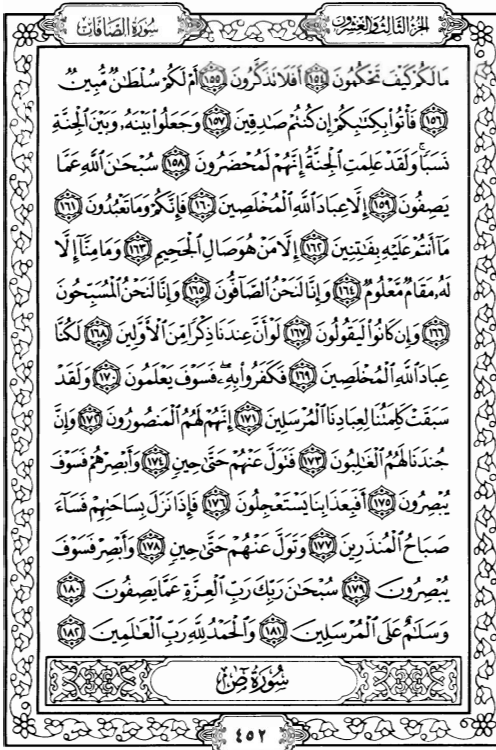 الجزء الثالث والعشرون
سورة الصافات
مَا لَكُمْ كَيْفَ تَحْكُمُونَ ١٥٤ أَفَلَا تَذَكَّرُونَ ١٥٥ أَمْ لَكُمْ سُلْطَانٌ مُّبِينٌ
١٥٦ فَأْتُوا بِكِتَابِكُمْ إِن كُنتُمْ صَادِقِينَ ١٥٧ وَجَعَلُوا بَيْنَهُ وَبَيْنَ الْجِنَّةِ
نَسَبًا وَلَقَدْ عَلِمَتِ الْجِنَّةُ إِنَّهُمْ لَمُحْضَرُونَ ١٥٨ سُبْحَانَ اللَّهِ عَمَّا
يَصِفُونَ ١٥٩ إِلَّا عِبَادَ اللَّهِ الْمُخْلَصِينَ ١٦٠ فَإِنَّكُمْ وَمَا تَعْبُدُونَ ١٦١
مَا أَنتُمْ عَلَيْهِ بِفَاتِنِينَ ١٦٢ إِلَّا مَنْ هُوَ صَالِ الْجَحِيمِ ١٦٣ وَمَا مِنَّا إِلَّا
لَهُ مَقَامٌ مَّعْلُومٌ ١٦٤ وَإِنَّا لَنَحْنُ الصَّافُّونَ ١٦٥ وَإِنَّا لَنَحْنُ الْمُسَبِّحُونَ
١٦٦ وَإِن كَانُوا لَيَقُولُونَ ١٦٧ لَوْ أَنَّ عِندَنَا ذِكْرًا مِّنَ الْأَوَّلِينَ ١٦٨ لَكُنَّا
عِبَادَ اللَّهِ الْمُخْلَصِينَ ١٦٩ فَكَفَرُوا بِهِ فَسَوْفَ يَعْلَمُونَ ١٧٠ وَلَقَدْ
سَبَقَتْ كَلِمَتُنَا لِعِبَادِنَا الْمُرْسَلِينَ ١٧١ إِنَّهُمْ لَهُمُ الْمَنصُورُونَ ١٧٢ وَإِنَّ
جُندَنَا لَهُمُ الْغَالِبُونَ ١٧٣ فَتَوَلَّ عَنْهُمْ حَتَّىٰ حِينٍ ١٧٤ وَأَبْصِرْهُمْ فَسَوْفَ
يُبْصِرُونَ ١٧٥ أَفَبِعَذَابِنَا يَسْتَعْجِلُونَ ١٧٦ فَإِذَا نَزَلَ بِسَاحَتِهِمْ فَسَاءَ
صَبَاحُ الْمُنذَرِينَ ١٧٧ وَتَوَلَّ عَنْهُمْ حَتَّىٰ حِينٍ ١٧٨ وَأَبْصِرْ فَسَوْفَ
يُبْصِرُونَ ١٧٩ سُبْحَانَ رَبِّكَ رَبِّ الْعِزَّةِ عَمَّا يَصِفُونَ ١٨٠
وَسَلَامٌ عَلَى الْمُرْسَلِينَ ١٨١ وَالْحَمْدُ لِلَّهِ رَبِّ الْعَالَمِينَ ١٨٢
سُورَةُ صٓ
٤٥٢